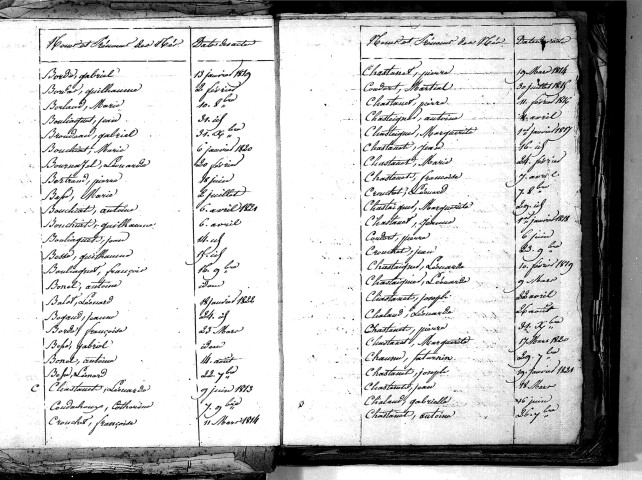 Noms et Prénoms des Nés Dates des actes
Borde, gabriel 13 janvier 1819
Bordas, guilhaume 2 février
Borland, Marie 10. 8bre
Bouliaguet, jean 30. id
Brondeau, gabriel 31. Xbre
Bouchiat, Marie 6 janvier 1820
Bournazel, Léonarde 20 février
Bertrand, pierre 20 juin
Boss, Marie 2 juillet
Bouchiat, antoine 6. avril 1821
Bouchiat, guilhaume 6. avril
Bouliaguet, jean 14. id
Bosse, guilhaume 15. id
Bouliaguet, françois 16. 9bre
Bonet, antoine idem
Balot, Léonard 18 janvier 1822
Bogaud, jeanne 24. id
Borde, françoise 23 Mars
Boss, gabriel idem
Bonet, antoine 14. août
Boss, Léonard 22. 7bre
C Chastanet, Léonarde 9 juin 1813
Coudamy, Catherine 7. 9bre
Crouchet, françoise 11 Mars 1814
Noms et Prénoms des Nés Dates des actes
Chastanet, pierre 19. Mars 1814
Coudert, Martial 30 juillet 1815
Chastanet, pierre 11. février 1816
Chastaignet, antoine 4. avril
Chastaignet, Marguerite 1er janvier 1817
Chastanet, jean 16. id
Chastanet, Marie 24. février
Chastanet, françoise 7. avril
Crouchet, Léonard 7. 8bre
Chastaignet, Marguerite 29. id
Chastanet, jeanne 1er janvier 1818
Coudert, pierre 6 juin
Crouchet, jean 23. 9bre
Chastaignet, Léonarde 10. février 1819
Chastaignet, Léonarde 9 Mars
Chastanet, joseph 22 avril
Chaland, Léonarde 26 août
Chastanet, pierre 24. Xbre
Chastanet, Marguerite 17 Mars 1820
Chaume, 29. 7bre
Chastanet, joseph 19. janvier 1821
Chastanet, jean 18 Mars
Chaland, gabrielle 16 juin
Chastanet, antoine 26. 7bre